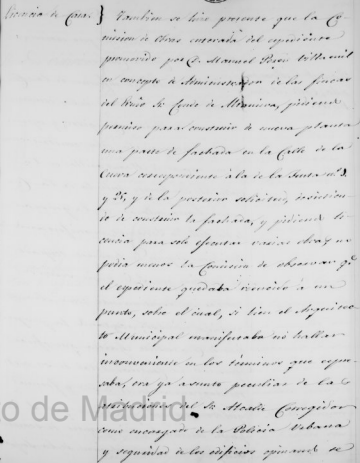 Licencia de Casa. } Tambien se hizo presente que la Co-
mision de Obras enterada del espediente
promovido por D. Manuel Perez Villamil
en concepto de Administrador de las fincas
del Sr. Conde de pidiendo
permiso para construir de nueva planta
una parte de fachada en la Calle de la
Cueva correspondiente á la de la nos.
y 21, y de la posterior solicitud, desistien-
do de construir la fachada, y pidiendo li-
cencia para solo efectuar varias obras, no
podia menos la Comision de observar qe.
el espediente quedaba reducido á un
punto, sobre el cual, si bien el Arquitec-
to Municipal manifestaba no hallar
inconveniente en los términos que espre-
saba, era ya asunto peculiar de la
atribuciones del Sr. Alcalde Corregidor
como encargado de la Policía Urbana
y seguridad de los edificios opinando se
to de Madrid